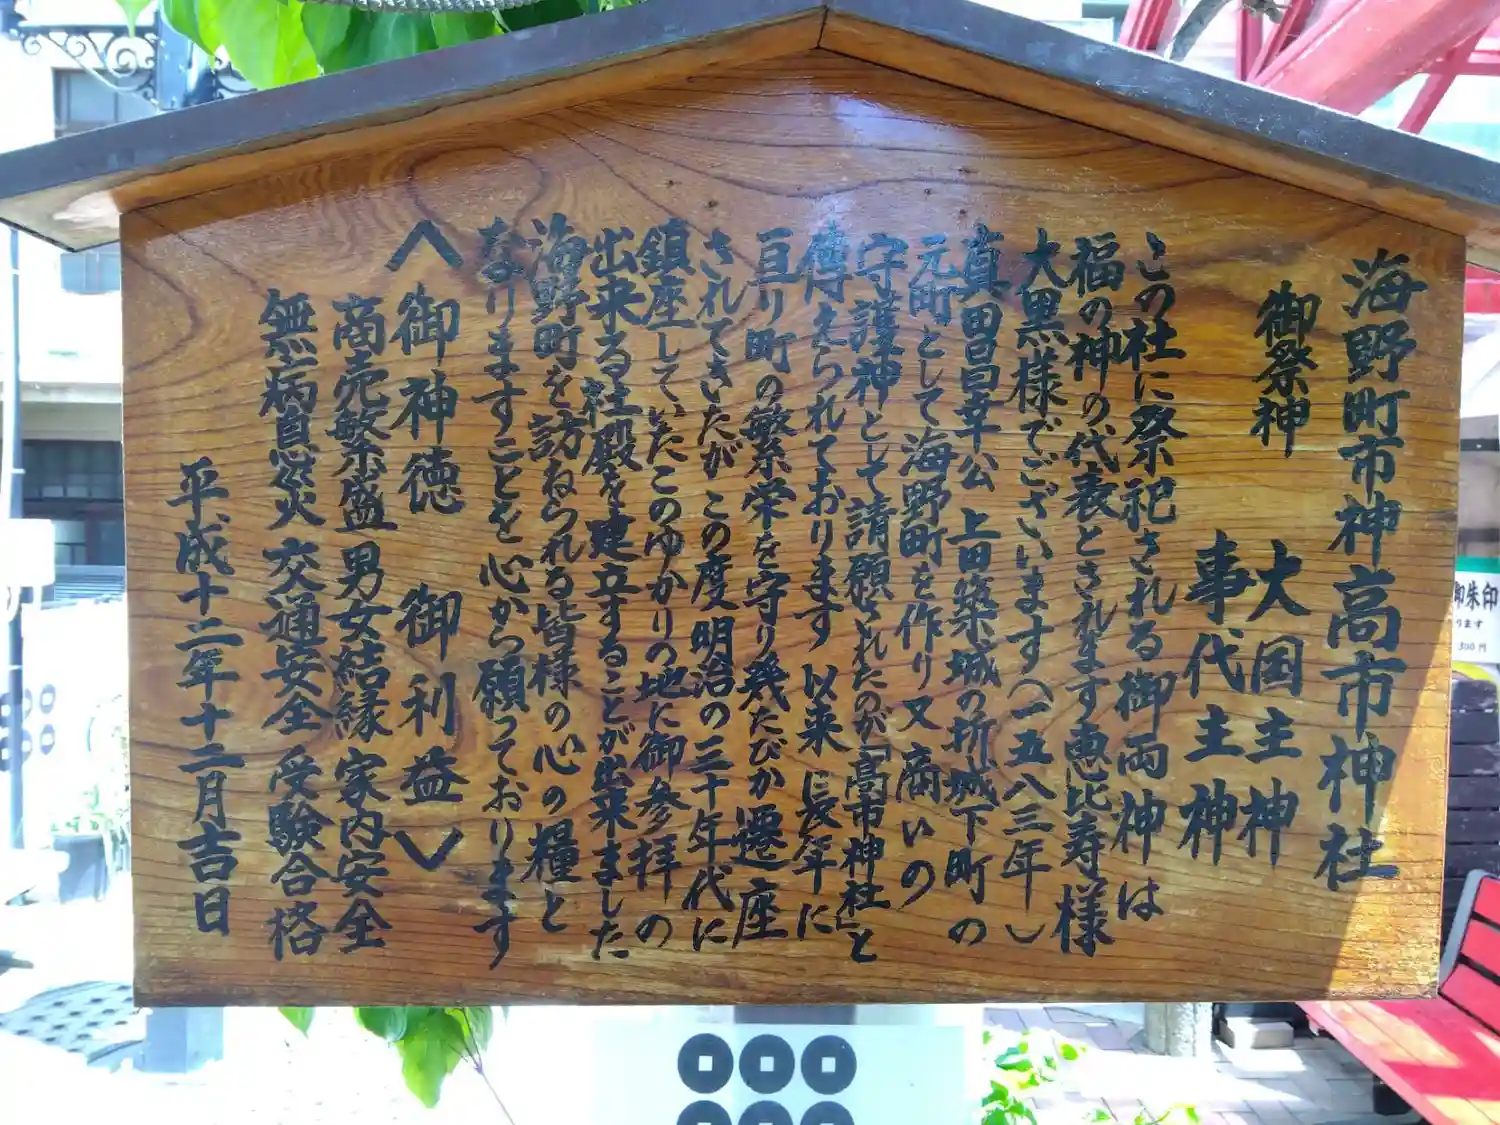 海野町市神高市神社
御祭神
大国主神
事代主神
この社に祭祀される御両神は
福の神の代表とされます恵比寿様
大黒様でございます(一五八三年)
真田昌幸公 上田築城の折城下町の
元町として海野町を作り又商いの
守護神として請願されたのが「高市神社」と
傳えられております 以来に長年に
亘り町の繁栄を守り幾たびか遷座
されてきたがこの度明治の三十年代に
鎮座していたこのゆかりの地に御参拝の
出来る社殿を建立することが出来ました
海野町を訪ねられる皆様の心の糧と
なりますことを心から願っております
<御神徳 御利益>
商売繁盛 男女結縁 家内安全
無病息災 交通安全 受験合格
平成十二年十二月吉日
御朱印
ります
300円